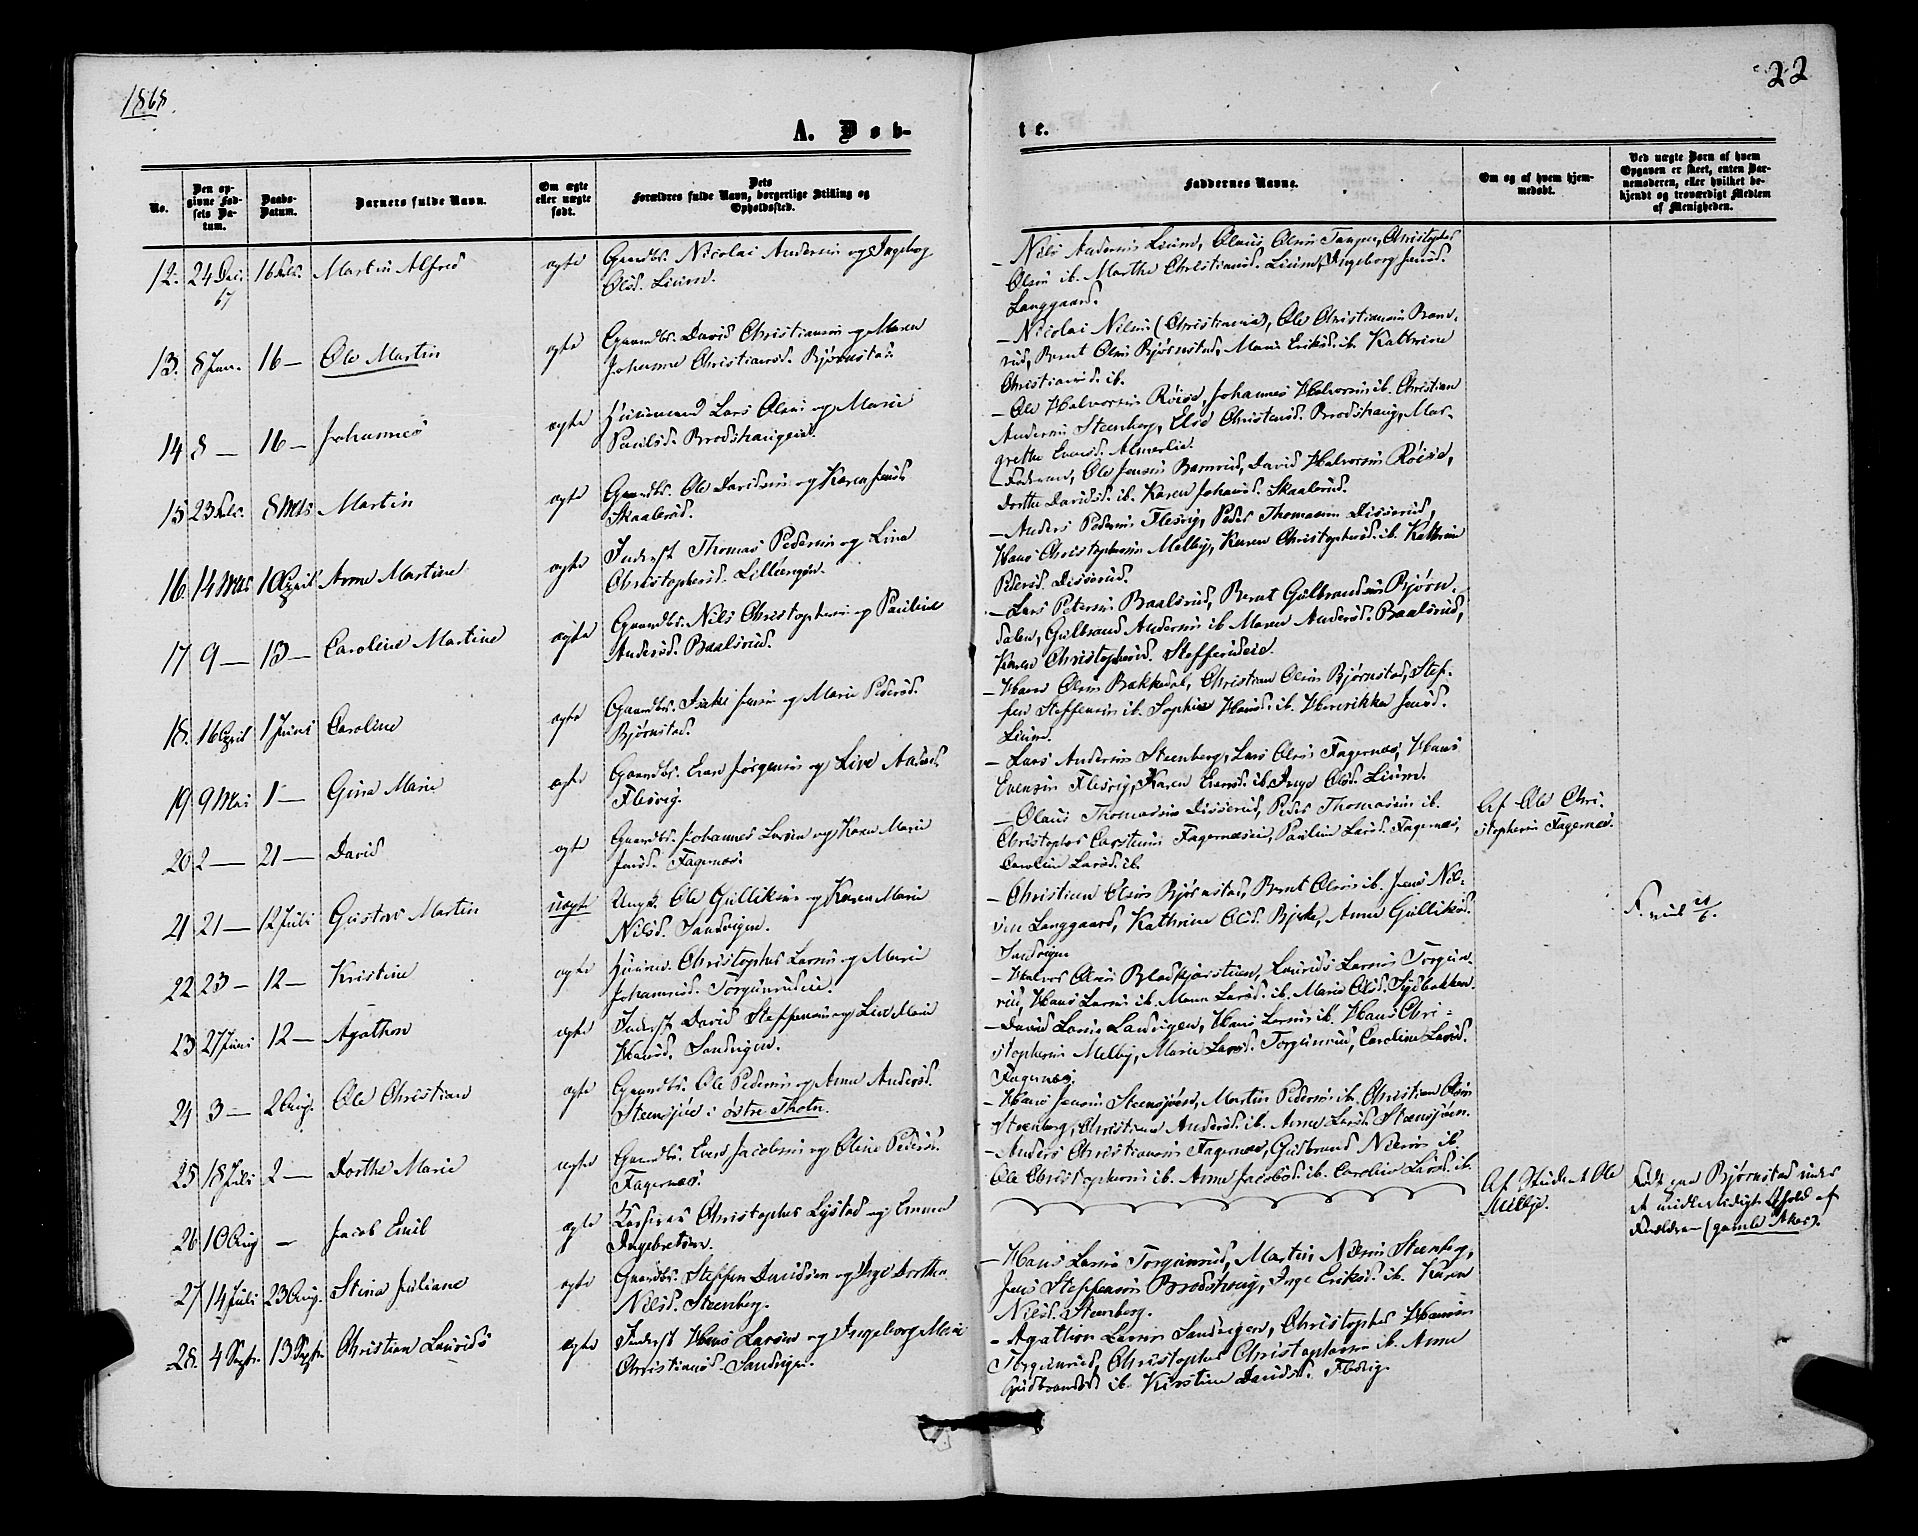 1868
22
A. Døb-
te.
No.
Den opgivne Fødsels Datum.
Daabs-Datum.
Barnets fulde Navn.
Om ægte eller uægte født.
Dets Forældres fulde Navn, borgerlige Stilling og Opholdssted.
Faddernes Navne.
Om og af hvem hjemmedøbt.
Ved uægte Børn af hvem Opgaven er skeet, enten Barnemoderen, eller hvilket bekjendt og troværdigt Medlem af Menigheden.
12. 24 Dec. 67 16 Feb. Martin Alfred ægte Gaardbr. Nicolai Andersen og Ingeborg
Olsd. Lium.
– Nils Andersen Lium, Olaus Olsen Tangen, Christopher
Olsen ib. Marthe Christiansd. Lium, Ingeborg Jensd.
Langgaard.
13. 8 Jan. 16 – Ole Martin ægte Gaardbr. David Christiansen og Maren
Johanne Christiansd. Bjørnstad.
– Nicolai Nilsen (Christiania), Ole Christiansen Bran-
rud, Bernt Olsen Bjørnstad, Marie Eriksd. ib. Kathrine
Christiansd. ib.
14 8 – 16 – Johannes ægte Huusmand Lars Olsen og Marie
Paulsd. Brodshaugeie.
– Ole Halvorsen Röise, Johannes Halvorsen ib. Christian
Andersen Steenberg, Else Christensd. Brodshaug, Mar-
grethe Evensd. Almerlie.
15 23 Feb. 8 Mts Martin ægte Gaardbr. Ole Davidsen og Karen Jensd.
Skaalerud.
– Faderen, Ole Jensen Bamrud, David Halvorsen Röise,
Dorthe Davidsd. ib. Karen Johansd. Skaalerud.
16. 14 Mts 10 April Anne Martine ægte Inderst Thomas Pedersen og Lina
Christophersd. Lilleengen.
– Anders Pedersen Flesvig, Peder Thomassen Disserud,
Hans Christophersen Melby, Karen Christophersd. ib. Kathrine
Pedersd. Disserud.
17 9 – 13 – Caroline Martine ægte Gaardbr. Nils Christophersen og Pauline
Andersd. Baalsrud.
– Lars Petersen Baalsrud, Bernt Gulbrandsen Bjørn-
dalen, Gulbrand Andersen ib. Maren Andersd. Baalsrud,
Karen Christophersd. Steffenseie.
18. 16 April 1 Juni Caroline ægte Gaardbr. Jens og Marie Pedersd.
Bjørnstad.
– Hans Olsen Bakkedal, Christian Olsen Bjørnstad, Stef-
fen Steffensen ib. Sophie Hansd. ib. Henrikke Jensd.
Lium.
19 9 Mai 1 – Gina Marie ægte Gaardbr. Even Jørgensen og Live
Flesvig.
– Lars Andersen Steenberg, Lars Olsen Fagernæs, Hans
Evensen Flesvig, Karen Evensd. ib. Inge Olsd. Lium.
20 2 – 21 – David ægte Gaardbr. Johannes Larsen og Karen Marie
Jensd. Fagernæs.
– Olaus Thomassen Disserud, Peder Thomassen ib.
Christopher Carstensen Fagernæseie, Pauline Larsd. Fagernæs,
Caroline Larsd. ib.
Af Ole Chri-
stophersen Fagernæs.
21 21 – 12 Juli Gustav Martin uægte Ungk. Ole Gulliksen og Karen Marie
Nilsd. Sandvigen.
– Christian Olsen Bjørnstad, Bernt Olsen ib. Jens Nil-
sen Langgaard, Kathrine Olsd. Bjerke, Anne Gulliksd.
Sandvigen
22 23 – 12 – Kristine ægte Huusm. Christopher Larsen og Marie
Johannesd. Torgunrudeie.
– Halvor Olsen Bladkjerstuen, Laurids Larsen Torgun-
rud, Hans Larsen ib. Maren Larsd. ib. Marie Olsd. Sydbakken.
23 27 Juni 12 – Agathon ægte Inderst David Steffensen og Lise Marie
Hansd. Sandvigen.
– David Larsen Sandvigen, Hans Larsen ib. Hans Chri-
stophersen Melby, Marie Larsd. Torgunrud, Caroline Larsd.
Fagernæs.
24 3 – 2 Aug. Ole Christian ægte Gaardbr. Ole Pedersen og Anne Andersd.
Steensjøen i østre Thoten.
– Hans Jensen Steensjøen, Martin Pedersen ib. Christian Olsen
Steenberg, Christiane Andersd. ib. Anne Larsd. Steensjøen.
25 18 Juli 2 – Dorthe Marie ægte Gaardbr. Even Jacobsen og Oline Pedersd.
Fagernæs.
– Anders Christiansen Fagernæs, Gudbrand Nilsen ib.
Ole Christophersen ib. Anne Jacobsd. ib. Caroline Larsd. ib.
26 10 Aug – Jacob Emil ægte Christopher Lystad og Emma
Ingebretsen.
Af Student Ole
Melbye.
Født paa Bjørnstad under
et midlertidigt Ophold af
Forældrene (gamle Aker).
27 14 Juli 23 Aug. Stina Juliane ægte Gaardbr. Steffen Davidsen og Inge Dorthea
Nilsd. Steenberg.
– Hans Larsen Torgunrud, Martin Nilsen Steenberg,
Jens Steffensen Brodshaug, Inge Eriksd. ib. Karen
Nilsd. Steenberg.
28. 4 Septr. 13 Septr. Christian Lauritz ægte Inderst Hans Larsen og Ingeborg Marie
Christiansd. Sandvigen.
– Agathon Larsen Sandvigen, Christopher Hansen
Torgunrud, Christopher Christophersen ib. Anne
Gudbrandsd. ib. Kirstine Davidsd. Flesvig.